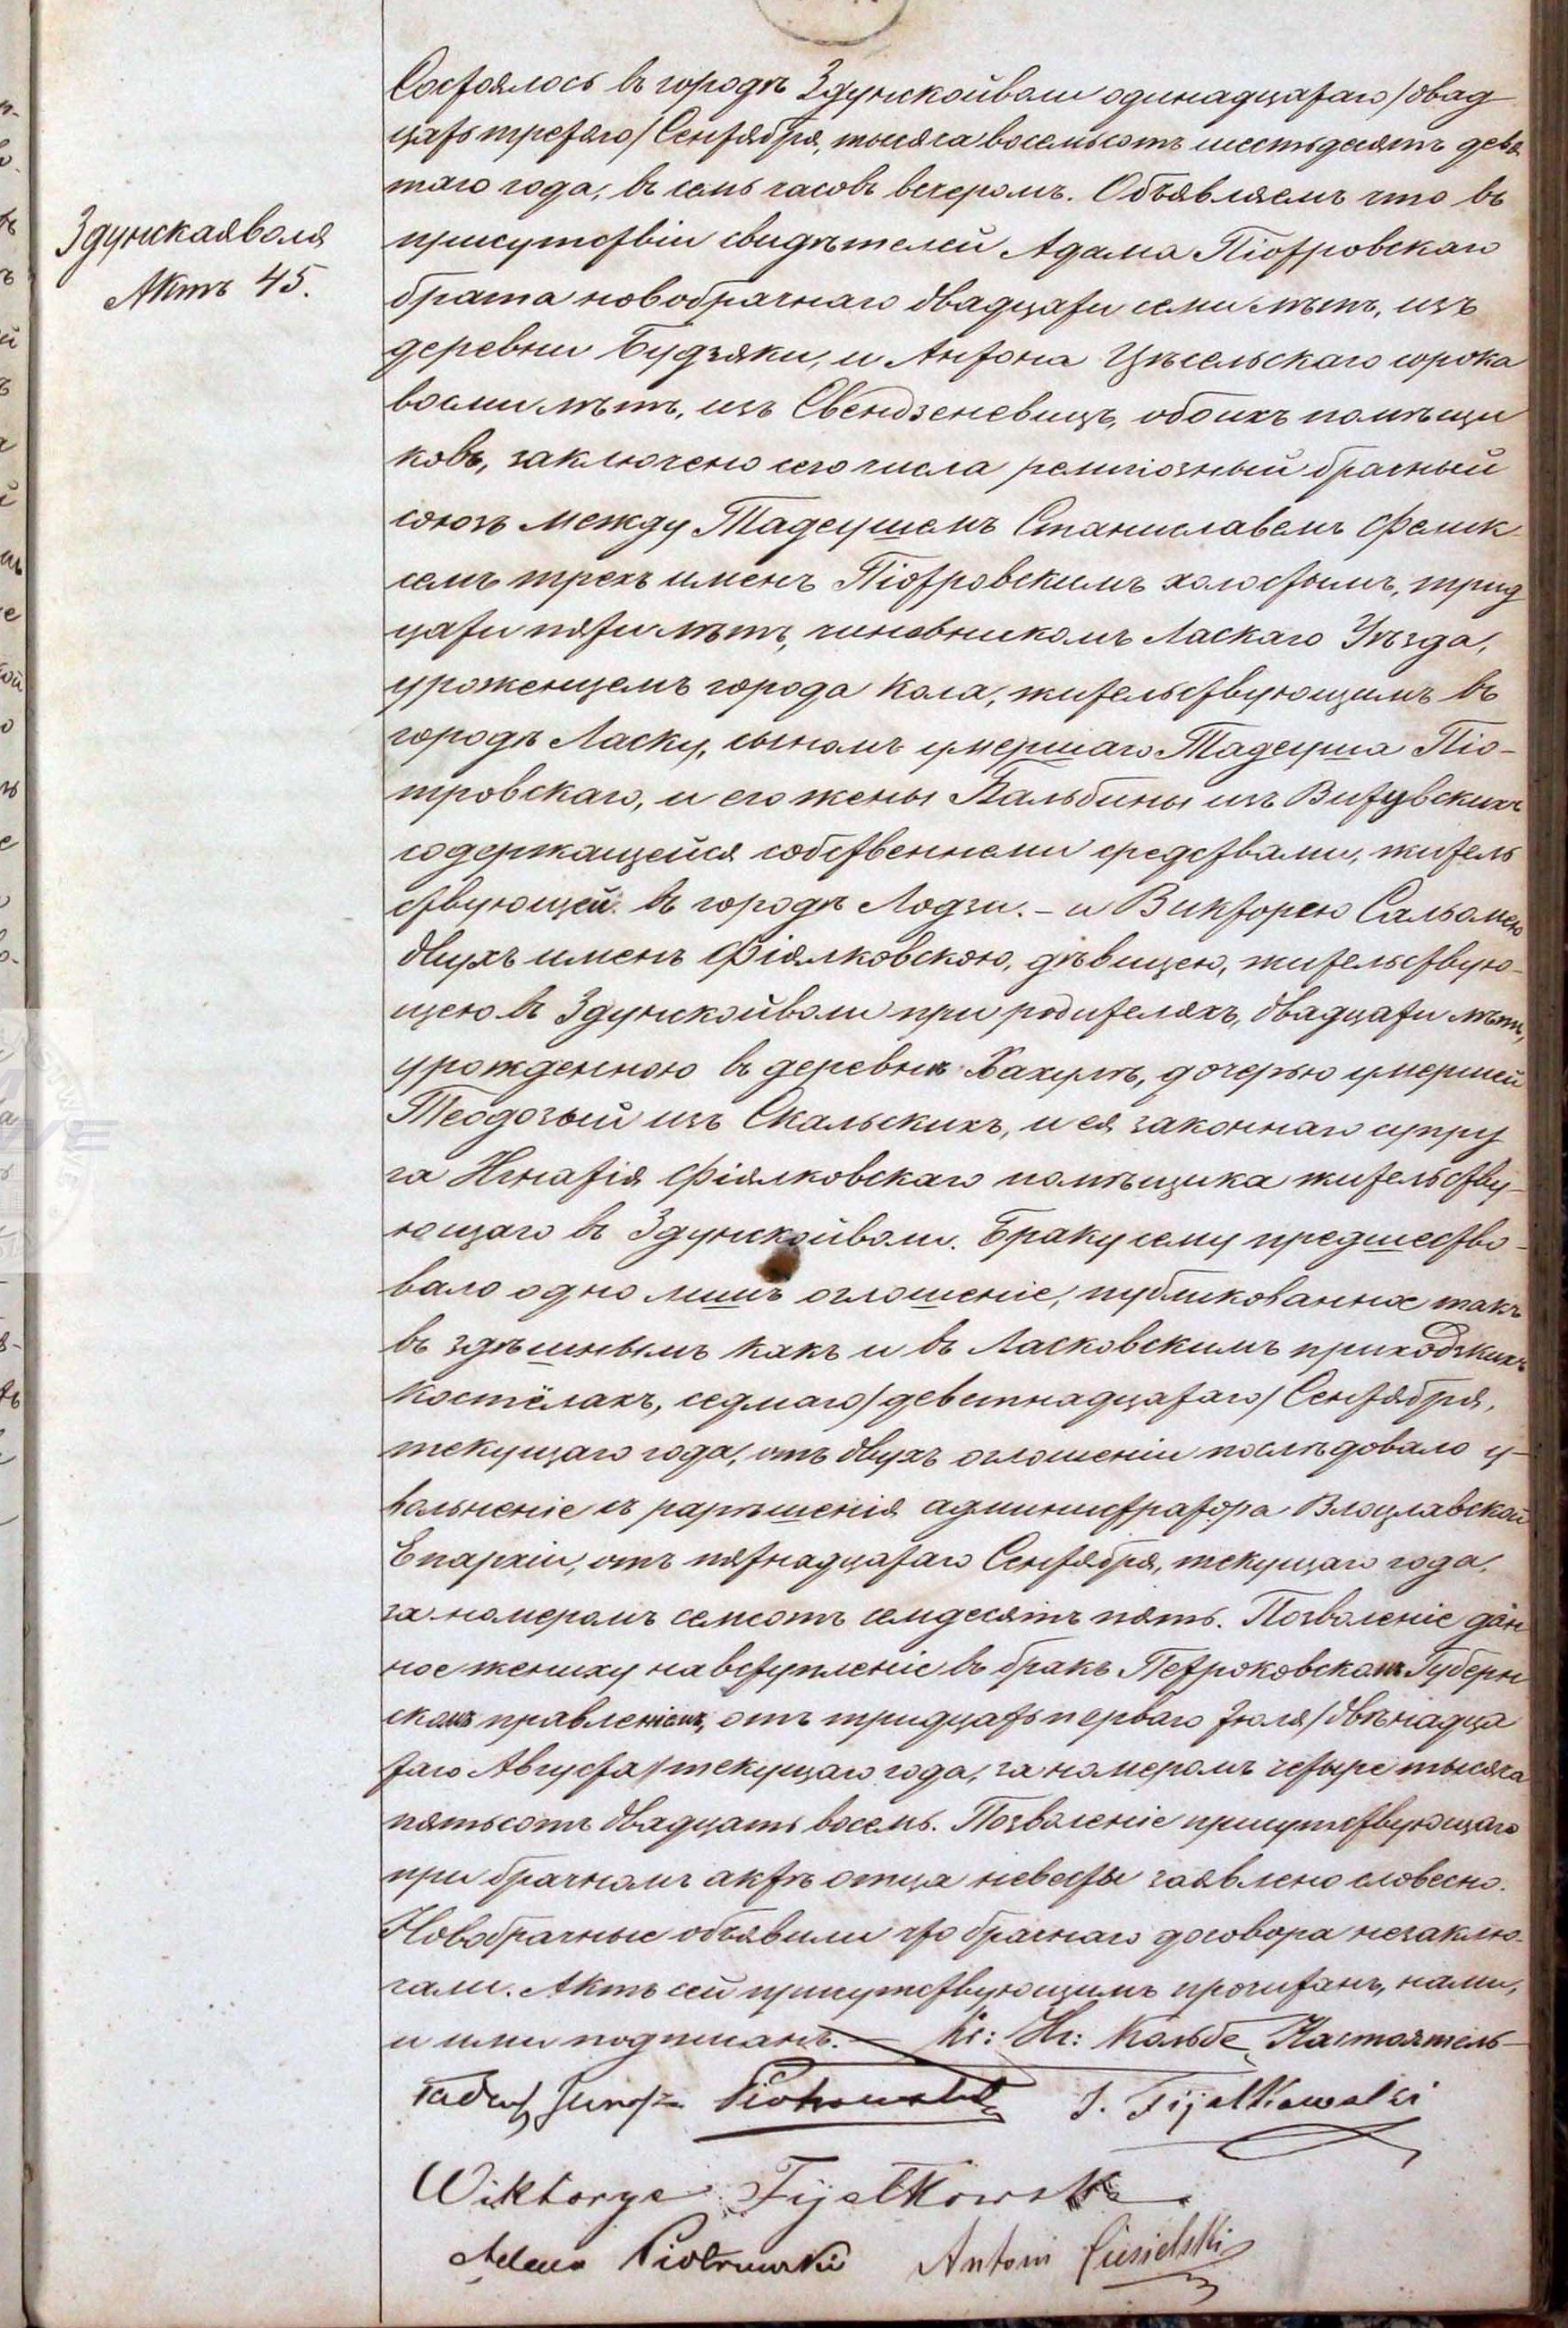 Здунскаяволя
Актъ 45.
Состоялось въ городѣ Здунскойволи одинадцатаго /двад
цать третяго/ Сентября, тысяча восемьсотъ шестьдесятъ девя
таго года, въ семь часовъ вечеромъ. Объявляемъ что въ
присутствіи свидѣтелей Адама Піотровскаго
брата новобрачнаго двадцати семи лѣтъ, изъ
деревни Будзяки, и Антона Цѣсельскаго сорока
восми лѣтъ, изъ Свендзеневицъ, обоихъ помѣщи
ковъ, заключено сего числа религіозный брачный
союзъ между Тадеушемъ Станиславемъ Фелик
семъ трехъ именъ Піотровскимъ холостымъ, трид
цати пяти лѣтъ, чиновникомъ Ласкаго Уѣзда,
уроженцемъ города Кола, жительствующимъ въ
городѣ Ласку, сыномъ умершаго Тадеуша Піо-
тровскаго, и его жены Бальбины изъ Витувскихъ
содержащейся собственнеми средствами, житель
ствующей въ городѣ Лодзи. - и Викторею Сальомею
двухъ именъ Фіялковскою, дѣвицею, жительствую-
щею въ Здунскойволи при родителяхъ, двадцати лѣтъ,
урожденною въ деревнѣ дочерью умершей
Теодозыи изъ Скальскихъ, и ея законнаго супру
га Игнатія Фіялковскаго помѣщика жительству-
ющаго въ Здунскойволи. Браку сему предшество-
вало одно лишъ оглошеніе, публикованное такъ
въ здѣшнымъ какъ и въ Ласковскимъ приходзкихъ
костёлахъ, седмаго /девятнадцатаго/ Сентября,
текущаго года, отъ двухъ оглошеніи послѣдовало у-
вольненіе съ разрѣшенія администратора Влоцлавской
Епархіи, отъ пятнадцатаго Сентября, текущаго года,
за номеромъ семсотъ семдесятъ пять. Позволеніе дан
ное жениху на вступленіе въ бракъ Петроковскомъ Губерн
скомъ правленіемъ, отъ тридцать перваго Іюля /двѣнадца
таго Августа/ текущаго года, за номеромъ четыре тысяча
пятьсотъ двадцать восемь. Позволеніе присутствующаго
при брачномъ актѣ отца невесты заявлено словесно.
Новобрачные объявили что брачнаго договора незаклю-
чали. Актъ сей присутствующимъ прочитанъ, нами,
и ими подписанъ. — Кс: Иг: Кольбе Настоятель—
Tadeusz Piotrowski J. Fijałkowalsi
Wiktorya Fijałkowska
Adam Piotrowski Antoni Cisielski